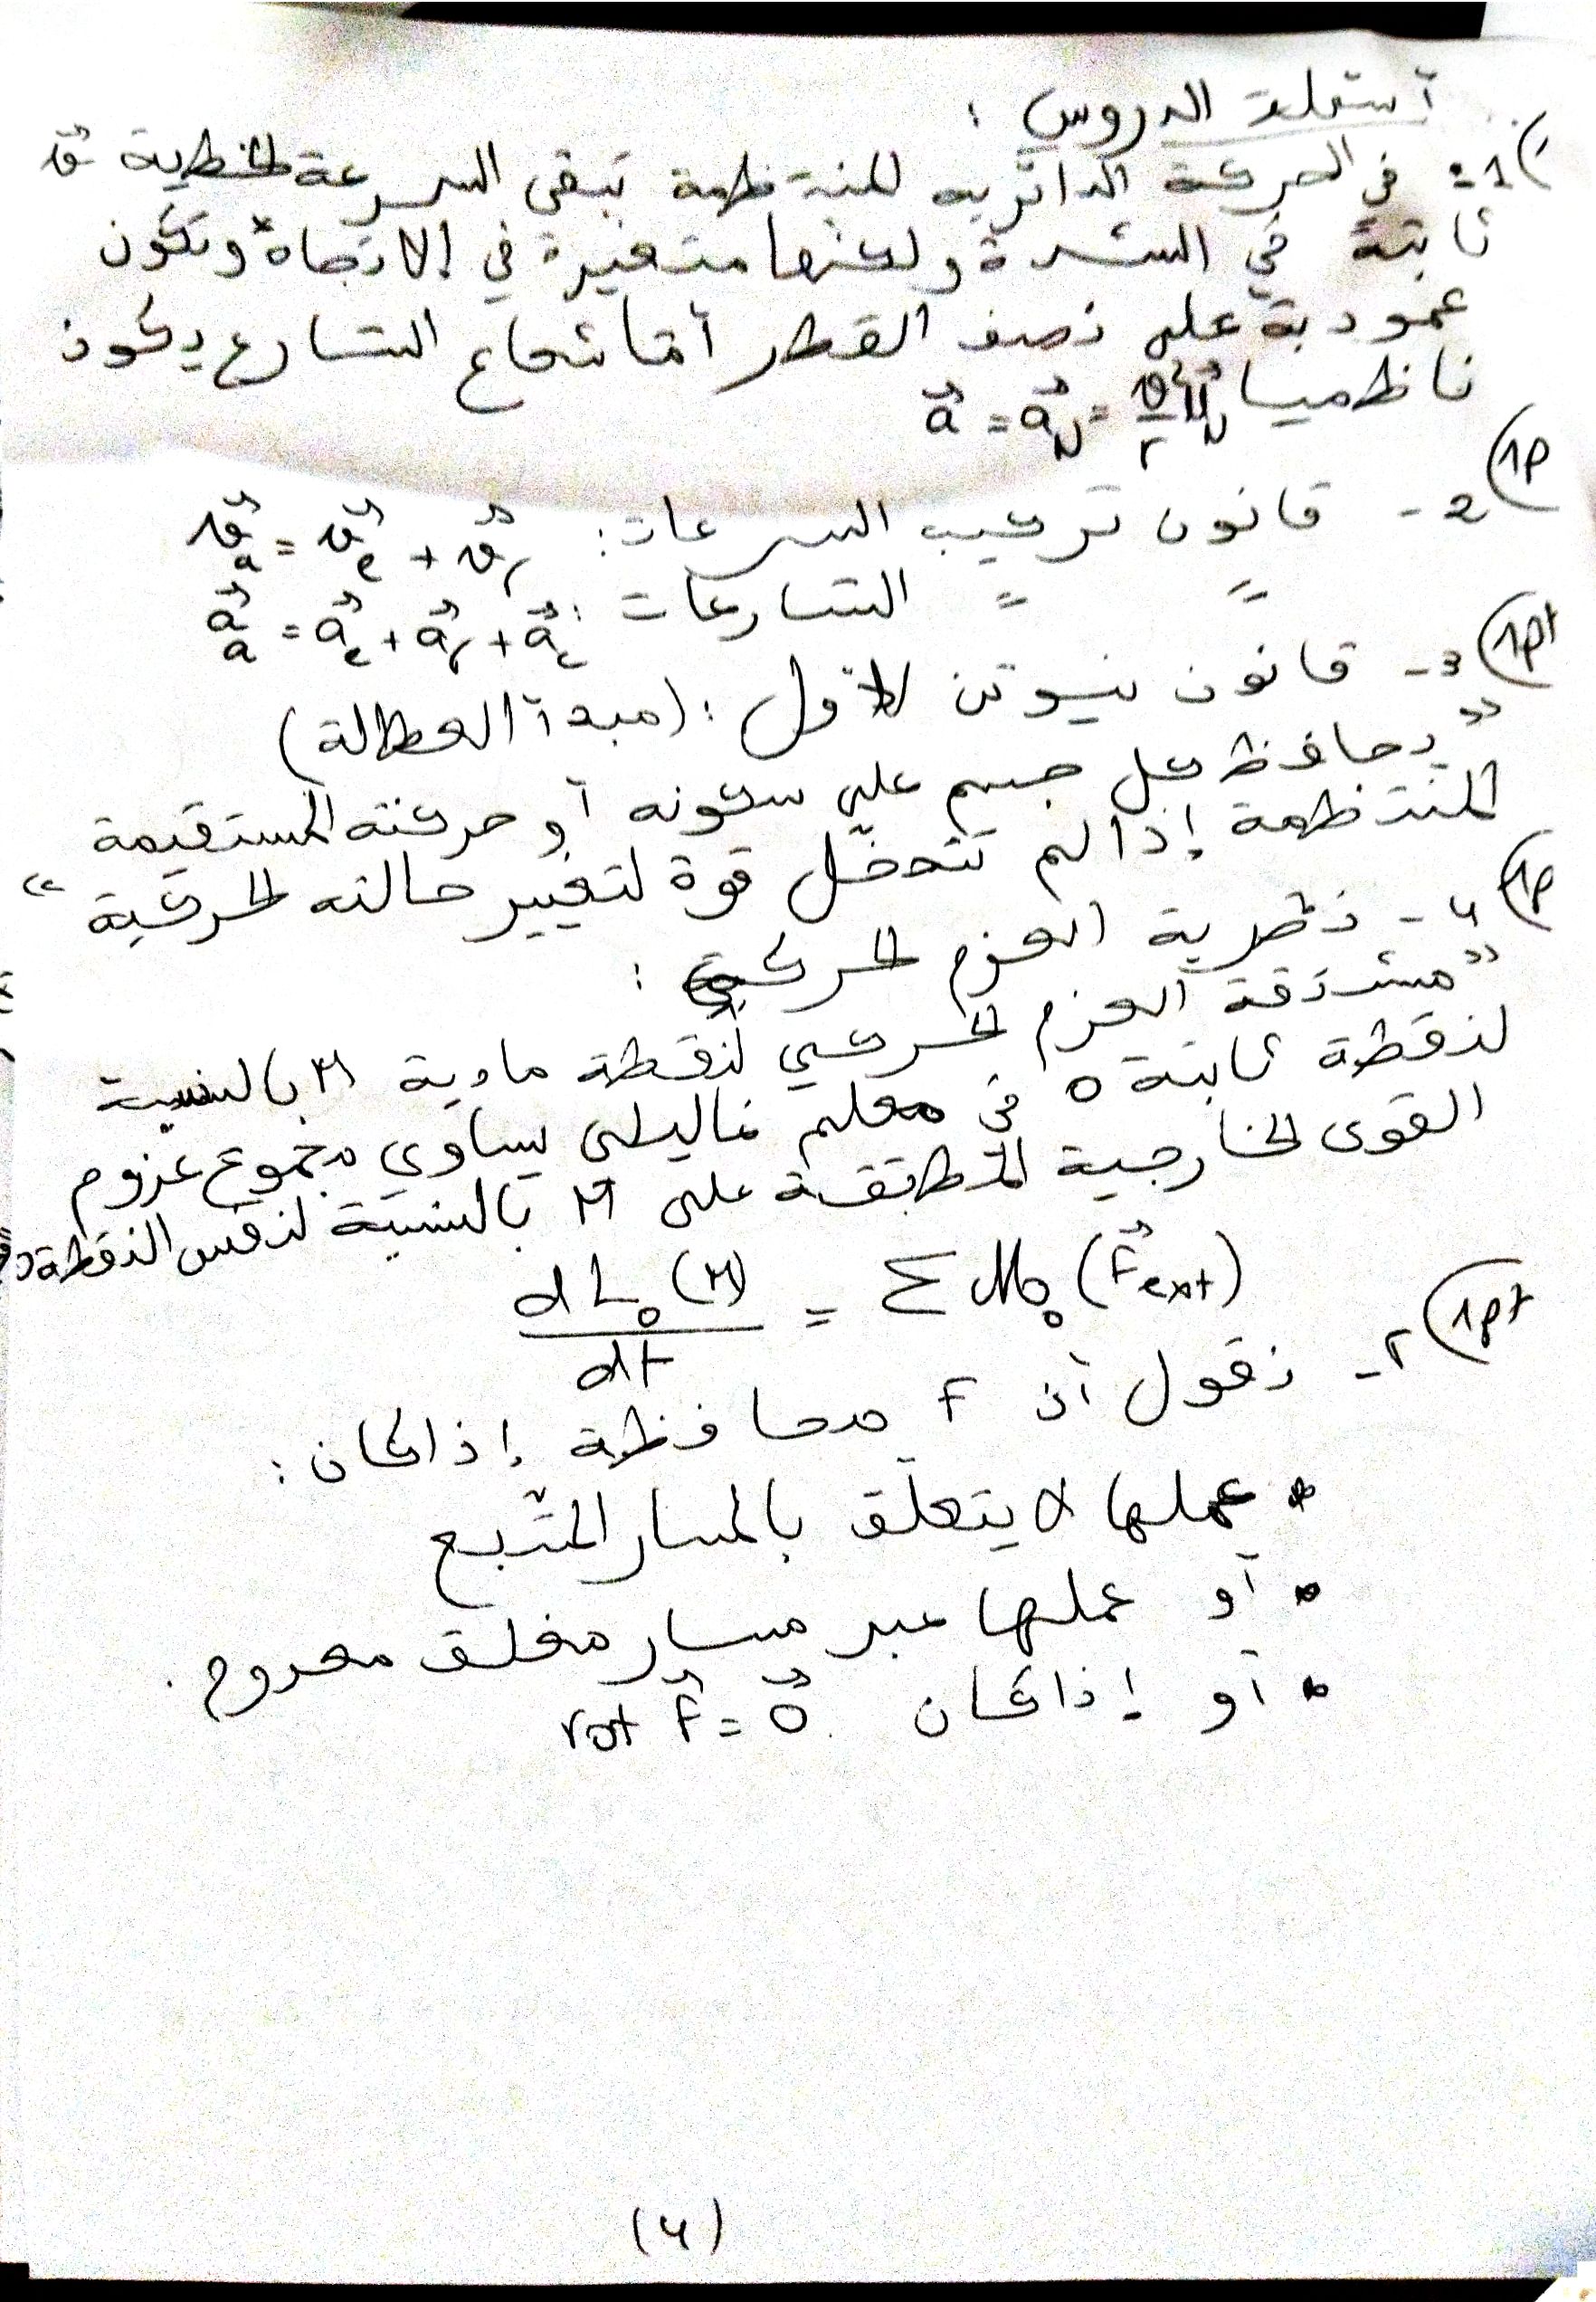 أسئلة الدروس :
1- في الحركة الدائرية المنتظمة تبقى السرعة الخطية v⃗
ثابتة في الشدة ولكنها متغيرة في الاتجاه وتكون
عمودية على نصف القطر أما شعاع التسارع يكون
ناظميا a⃗ = a⃗_N = v²/r u⃗_N
1p) 2- قانون تركيب السرعات: v⃗_a = v⃗_e + v⃗_r
= = التسارعات: a⃗_a = a⃗_e + a⃗_r + a⃗_c
1pt) 3- قانون نيوتن الأول : (مبدأ العطالة)
" يحافظ كل جسم على سكونه أو حركته المستقيمة
المنتظمة إذا لم تتدخل قوة لتغيير حالته الحركية "
1p) 4- نظرية العزم الحركي :
" مشتقة العزم الحركي لنقطة مادية M بالنسبة
لنقطة ثابتة O في معلم غاليلي يساوي مجموع عزوم
القوى الخارجية المطبقة على M بالنسبة لنفس النقطة "
dL_o(M)/dt = Σ M_o (F⃗ext)
1pt) 5- نقول أن F محافظة إذا كان :
• عملها لا يتعلق بالمسار المتبع
• أو عملها عبر مسار مغلق معدوم .
• أو إذا كان rot F⃗ = 0⃗
(4)